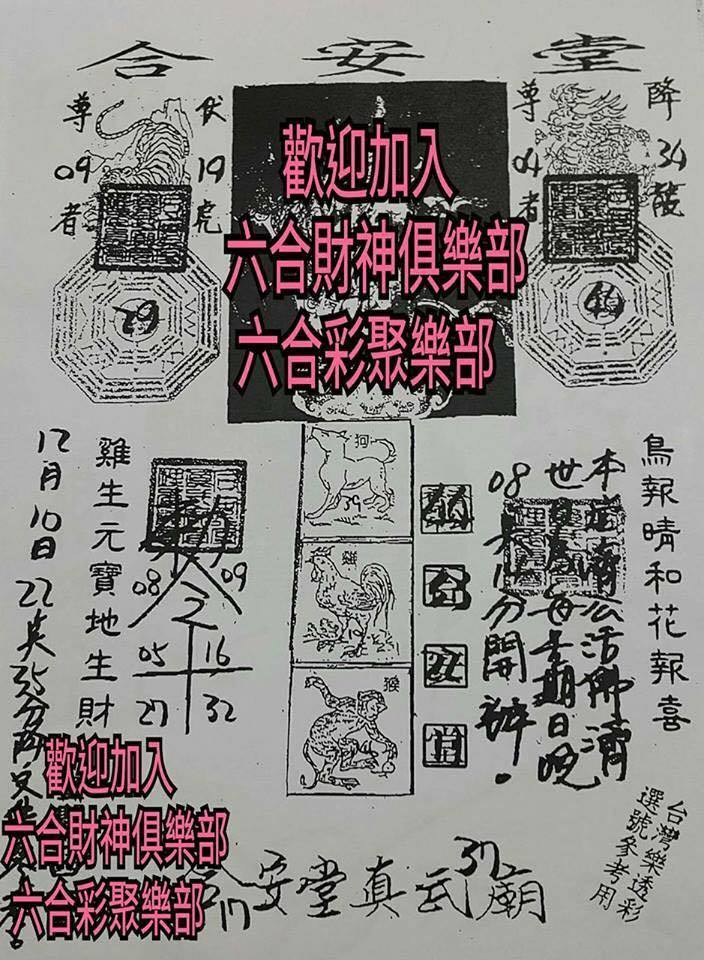 合安堂
降34龍
尊04者
伏19虎
尊09者
44
29
歡迎加入
六合財神俱樂部
六合彩聚樂部
鳥報晴和花報喜
本堂濟公活佛濟
世日為每星期日晚
08點 分開辦。
合安堂
狗
39
雞
猴
08 09
05 16
27 32
雞生元寶地生財
12月10日22點35分
歡迎加入
六合財神俱樂部
六合彩聚樂部
17
安堂真武廟
37
台灣樂透彩
選號參考用